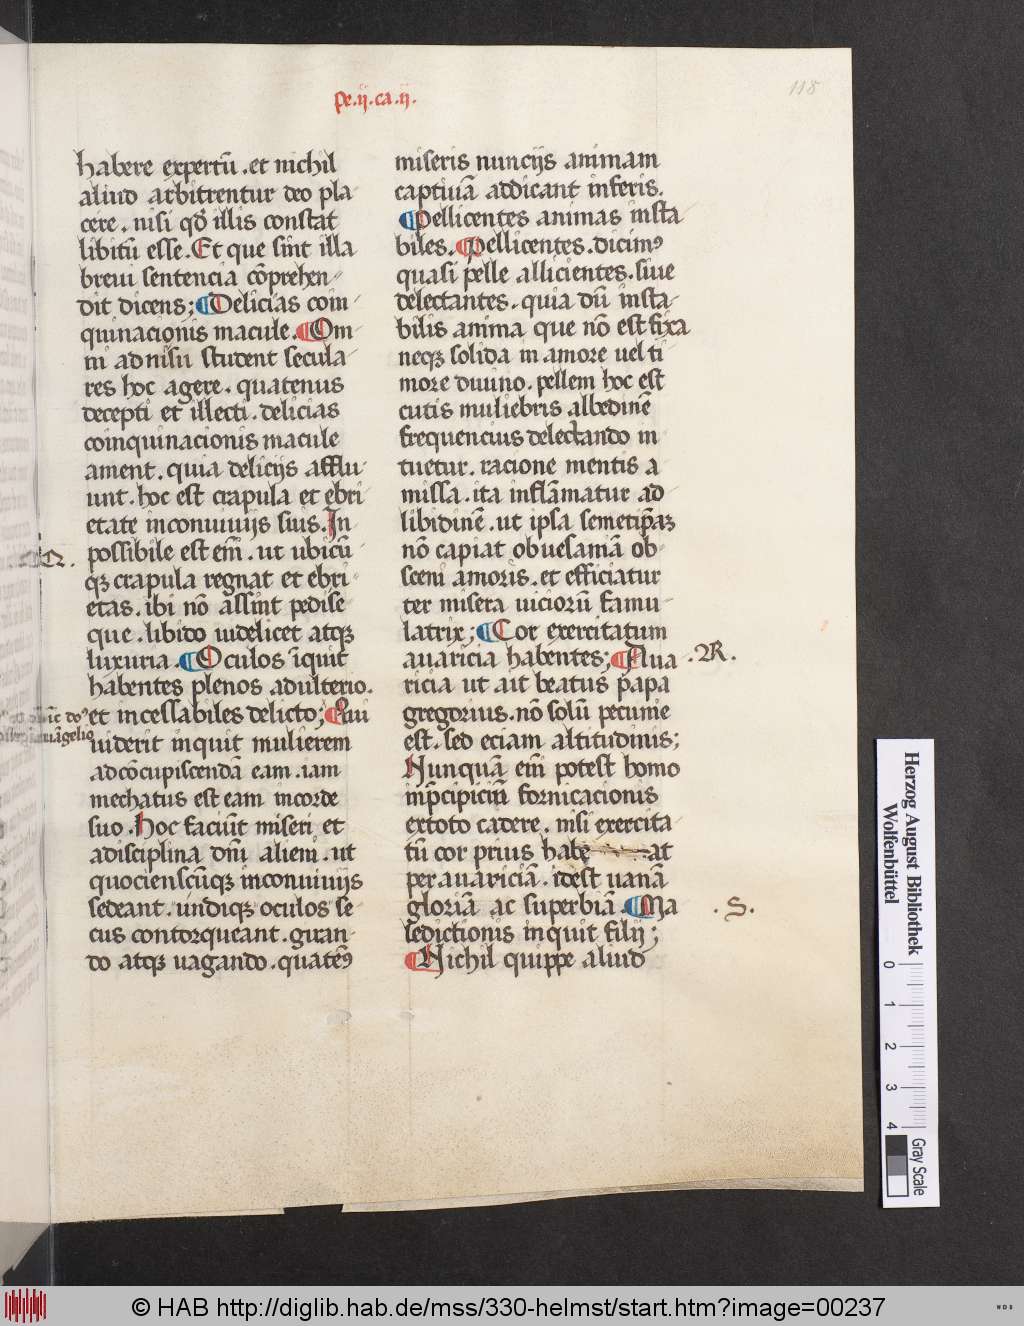 pe.ij.ca.ij.
118
habere expertū .et nichil
aliud arbitrentur deo pla
cere . nisi qđ illis constat
libitū esse . Et que sint illa
breui sentencia cōprehen
dit dicens; ¶ Delicias coin
quinacionis macule. ¶ Om
ni ad nisū student secula
res hoc agere . quatenus
decepti et illecti . delicias
coinquinacionis macule
ament . quia delicijs afflu
unt . hoc est crapula et ebri
etate in conuiuijs suis. In
possibile est em̄ . ut ubicū
qꝫ crapula regnat et ebri
etas . ibi nō assint pedise
que . libido uidelicet atqꝫ
luxuria . ¶ Oculos īquit
habentes plenos adulterio.
et incessabiles delicto; ¶ Qui
uiderit inquit mulierem
ad cōcupiscendā eam . iam
mechatus est eam in corde
suo . hoc faciūt miseri et
a disciplina dn̄i alieni . ut
quociensc̄ūqꝫ in conuiuijs
sedeant . undiqꝫ oculos se
cus contorqueant . giran
do atqꝫ uagando . quaten᷒
miseris nuncijs animam
captiuā addicant inferis.
¶ Pellicentes animas insta
biles. ¶ Pellicentes . dicim᷒
quasi pelle allicientes . siue
delectantes . quia dū insta
bilis anima que nō est fixa
neqꝫ solida in amore uel ti
more diuino . pellem hoc est
cutis muliebris albedinē
frequencius delectando in
tuetur . racione mentis a
missa . ita inflāmatur ad
libidinē . ut ipsa semetip̄aꝫ
nō capiat ob uesaniā ob
sceni amoris . et efficiatur
ter misera uiciorū famu
latrix; ¶ Cor exercitatum
auaricia habentes; ¶ Aua
.R.
ricia ut ait beatus papa
gregorius . nō solū pecunie
est . sed eciam altitudinis;
Nunquā em̄ potest homo
in p̄cipiciū fornicacionis
ex toto cadere . nisi exercita
tū cor prius habe at
per auariciā . idest uanā
gloriā ac superbiā . ¶ Ma
. S.
ledictionis inquit filij;
¶ Nichil quippe aliud
Herzog August Bibliothek
Wolfenbüttel
0
1
2
3
4
Gray Scale
© HAB http://diglib.hab.de/mss/330-helmst/start.htm?image=00237